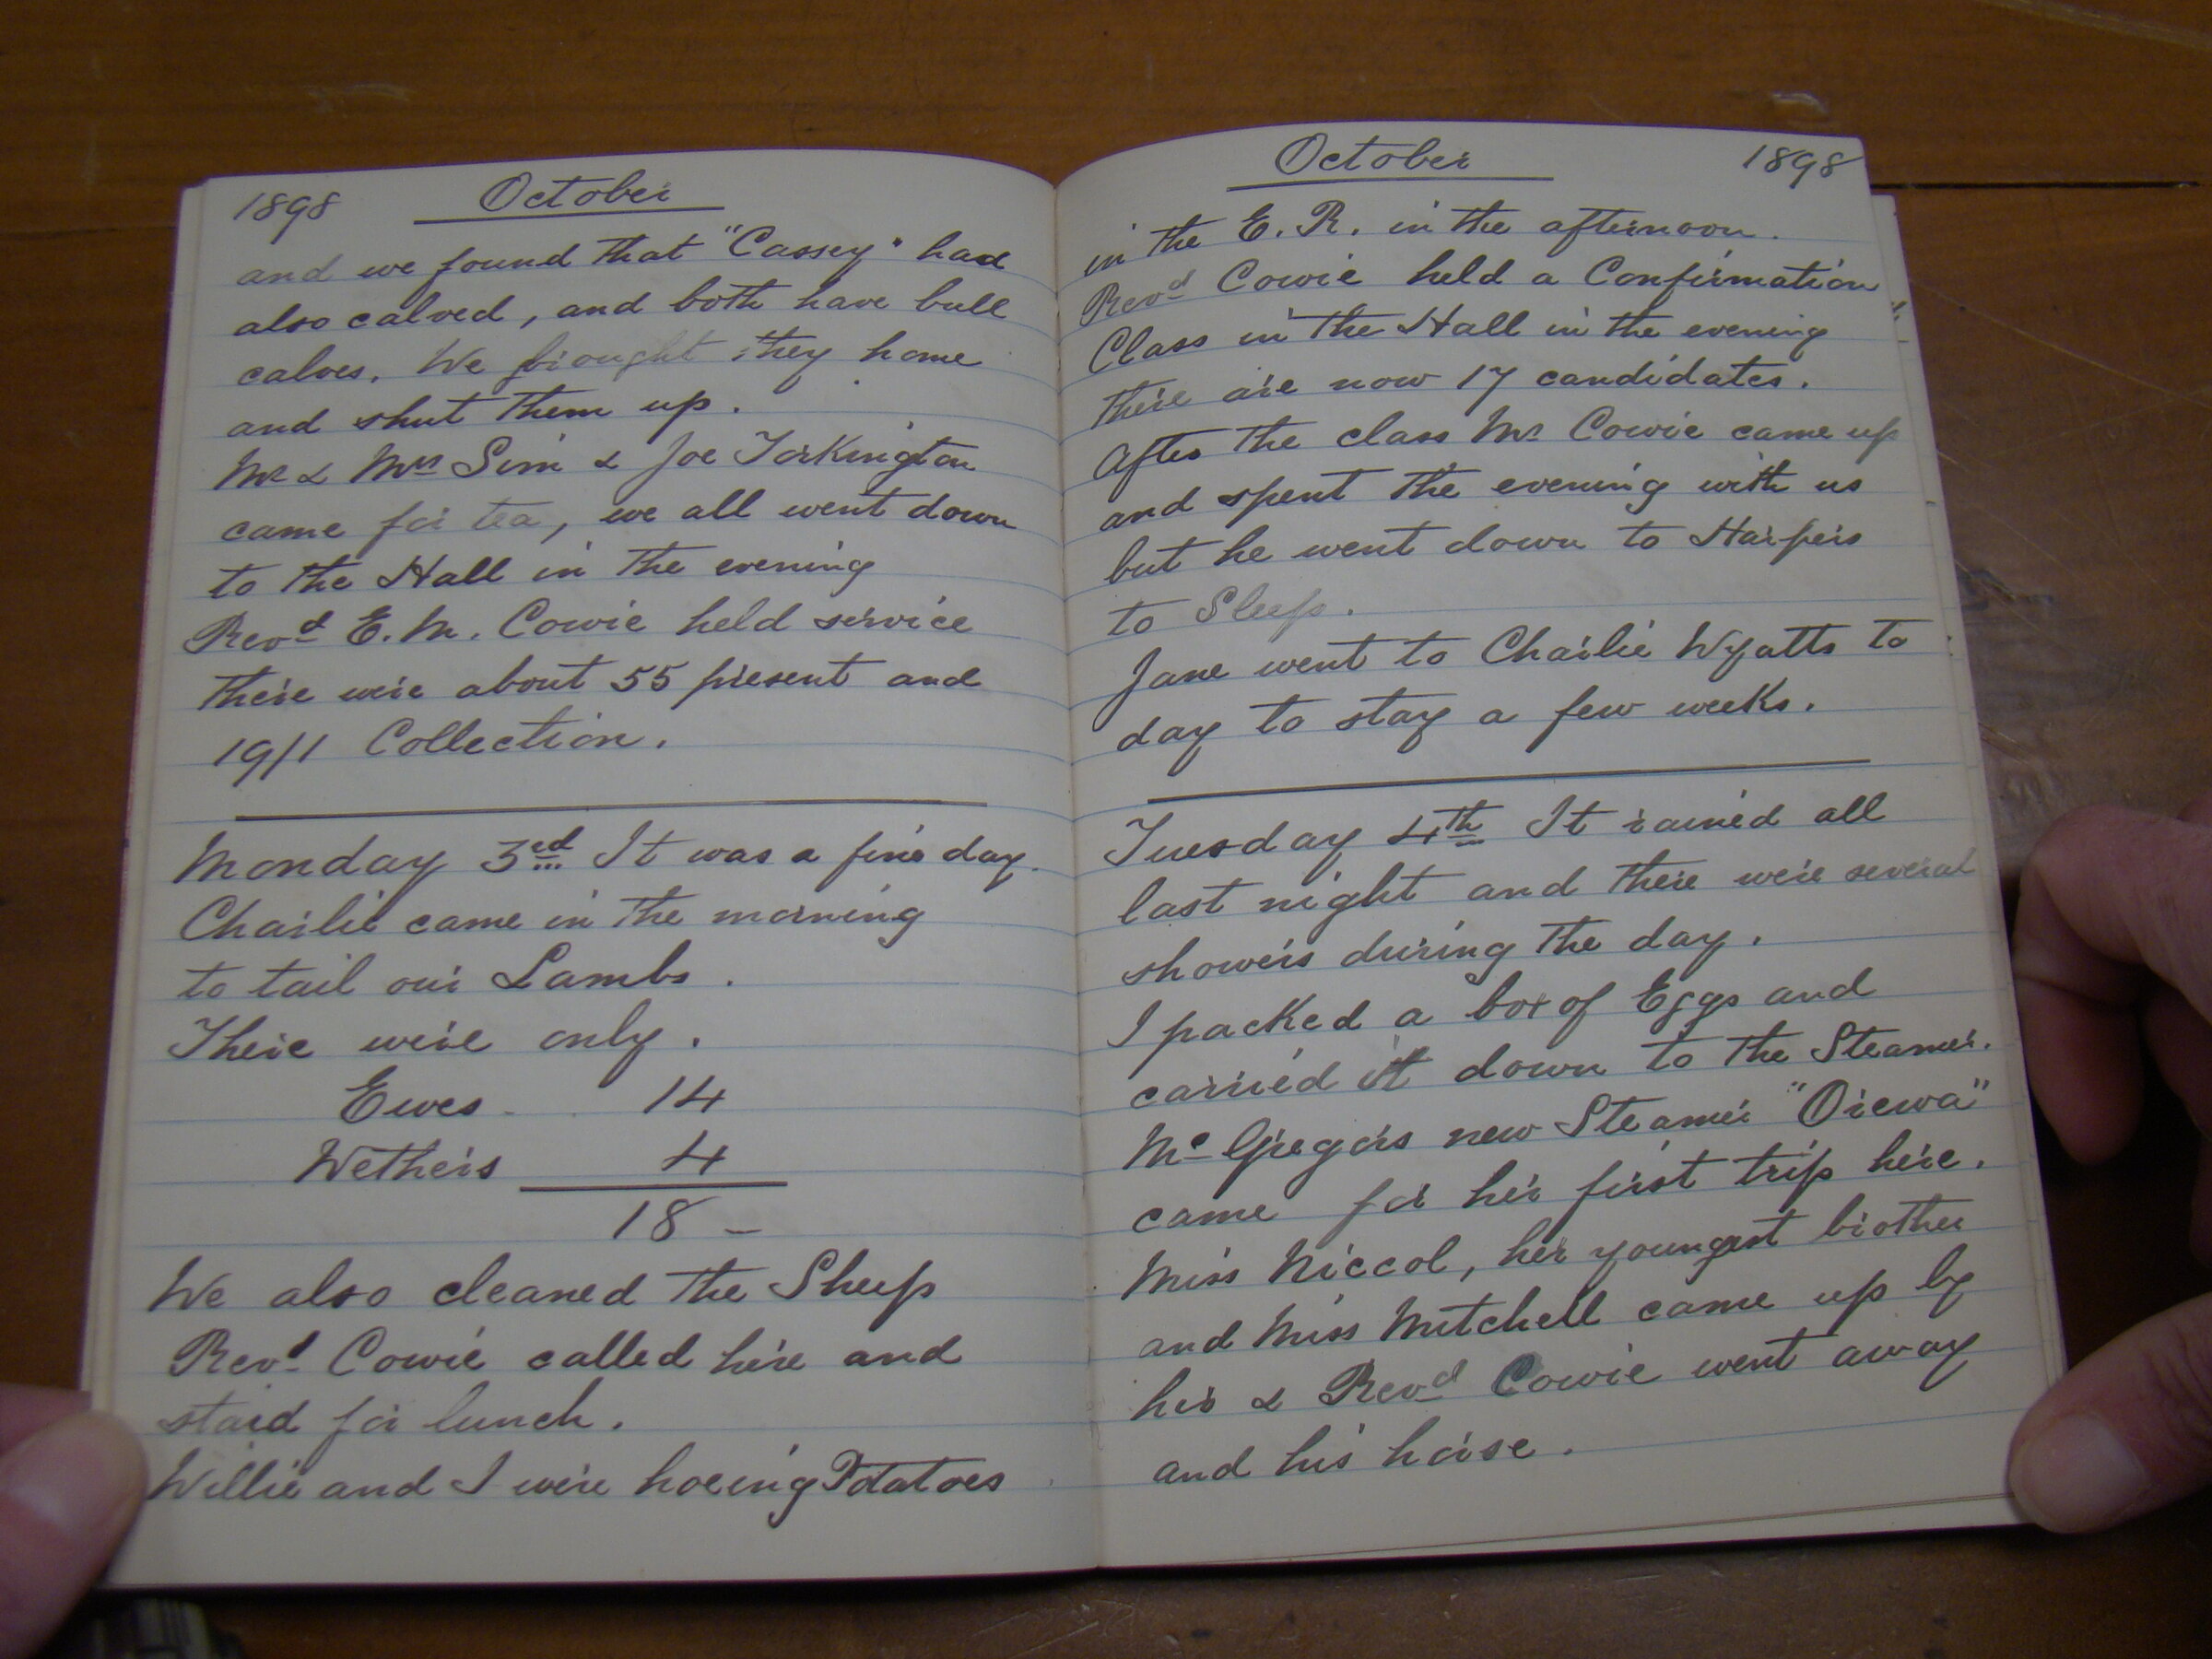 1898 October
and we found that "Cassey" had
also calved, and both have bull
calves. We brought they home
and shut them up.
Mr & Mrs Sim & Joe Torkington
came for tea, we all went down
to the Hall in the evening
Revd E. M. Cowie held service
there were about 55 present and
19/1 Collection.
Monday 3rd It was a fine day.
Charlie came in the morning
to tail our Lambs.
There were only.
Ewes 14
Wethers 4
18 –
We also cleaned the Sheep
Revd Cowie called here and
staid for lunch.
Willie and I were hoeing Potatoes
October 1898
in the E. R. in the afternoon.
Revd Cowie held a Confirmation
Class in the Hall in the evening
there are now 17 candidates.
After the class Mr Cowie came up
and spent the evening with us
but he went down to Harpers
to Sleep.
Jane went to Charlie Wyatts to
day to stay a few weeks.
Tuesday 4th It rained all
last night and there were several
showers during the day.
I packed a box of Eggs and
carried it down to the Steamer.
McGregors new Steamer "Orewa"
came for her first trip here.
Miss Niccol, her youngest brother
and Miss Mitchell came up by
her & Revd Cowie went away
and his horse.